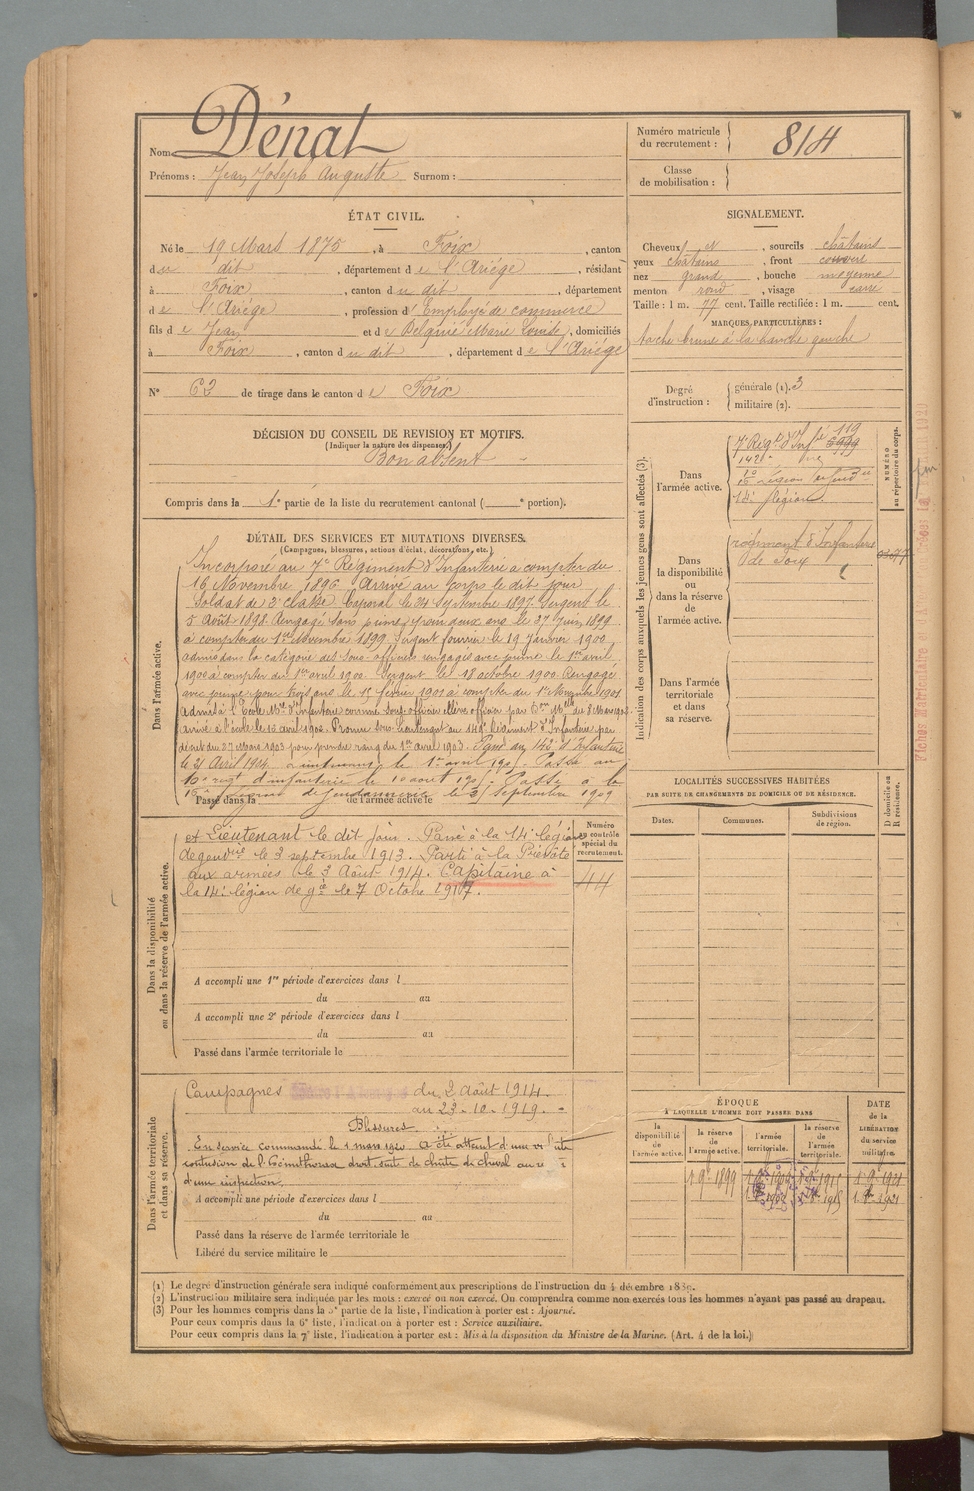 Nom Dénat
Prénoms : Jean Joseph Auguste Surnom :
Numéro matricule du recrutement : 814
Classe de mobilisation :
ÉTAT CIVIL.
Né le 19 Mars 1875, à Foix, canton
du dit, département de l'Ariége, résidant
à Foix, canton du dit, département
de l'Ariége, profession d'Employé de commerce
fils de Jean et de Delquié Marie Louise, domiciliés
à Foix, canton du dit, département de l'Ariége
N° 62 de tirage dans le canton de Foix
SIGNALEMENT.
Cheveux N, sourcils châtains
yeux châtains, front couvert
nez grand, bouche moyenne
menton rond, visage carré
Taille : 1 m. 77 cent. Taille rectifiée : 1 m. cent.
MARQUES PARTICULIÈRES :
tache brune à la hanche gauche
Degré d'instruction : générale (1). 3
militaire (2).
DÉCISION DU CONSEIL DE REVISION ET MOTIFS.
(Indiquer la nature des dispenses.)
Bon absent
Compris dans la 1e partie de la liste du recrutement cantonal ( e portion).
DÉTAIL DES SERVICES ET MUTATIONS DIVERSES.
(Campagnes, blessures, actions d'éclat, décorations, etc.)
Dans l'armée active.
Incorporé au 7e Régiment d'Infanterie à compter du
16 Novembre 1896 Arrivé au corps le dit jour
Soldat de 2e classe Caporal le 24 Septembre 1897. Sergent le
5 Août 1898. Rengagé sans prime pour deux ans le 27 Juin 1899
à compter du 1er Novembre 1899. Sergent fourrier le 19 Janvier 1900
admis dans la catégorie des sous-officiers rengagés avec prime le 1er avril
1900 à compter du 1er avril 1900. Sergent le 18 octobre 1900. Rengagé
avec prime pour trois ans le 15 février 1901 à compter du 1er Novembre 1901
Admis à l'École Mre d'Infanterie comme sous-officier élève officier par Don Mlle du 8 Mars 1902
arrivé à l'école le 15 avril 1902. Promu sous-lieutenant au 142e Régiment d'Infanterie par
décret du 27 Mars 1903 pour prendre rang du 1er avril 1903. Passé au 142e d'Infanterie
le 21 Avril 1904. Lieutenant le 1er avril 1905. Passé au
régt d'infanterie le 10 août 190 . Passé à la
Passé dans la Légion de Gendarmerie de l'armée active le 3 Septembre 1909
Indication des corps auxquels les jeunes gens sont affectés (3).
NUMÉRO au répertoire du corps.
Dans l'armée active.
7e Régt d'Infie 119
142e
14e légion
Dans la disponibilité ou dans la réserve de l'armée active.
régiment d'Infanterie
de Foix
Dans l'armée territoriale et dans sa réserve.
LOCALITÉS SUCCESSIVES HABITÉES
PAR SUITE DE CHANGEMENTS DE DOMICILE OU DE RÉSIDENCE.
D domicile ou R résidence.
Dates. Communes. Subdivisions de région.
Numéro de contrôle spécial du recrutement.
44
Dans la disponibilité ou dans la réserve de l'armée active.
et Lieutenant le dit jour. Passé à la 14e légion
de gendrie le 3 septembre 1913. Parti à la Prévôté
aux armées le 3 Août 1914. Capitaine à
la 14e légion de gie le 7 Octobre 1917.
A accompli une 1re période d'exercices dans l
du au
A accompli une 2e période d'exercices dans l
du au
Passé dans l'armée territoriale le
Dans l'armée territoriale et dans sa réserve.
Campagnes du 2 Août 1914.
au 23-10-1919.
Blessures.
En service commandé le 1 mars 1920 a été atteint d'une
contusion de l'hémithorax droit suite de chute de cheval au
d'une inspection.
A accompli une période d'exercices dans l
du au
Passé dans la réserve de l'armée territoriale le
Libéré du service militaire le
ÉPOQUE
À LAQUELLE L'HOMME DOIT PASSER DANS
la disponibilité de l'armée active. la réserve de l'armée active. l'armée territoriale. la réserve de l'armée territoriale.
DATE de la LIBÉRATION du service militaire.
1 9e 1899
(1) Le degré d'instruction générale sera indiqué conformément aux prescriptions de l'instruction du 4 décembre 1889.
(2) L'instruction militaire sera indiquée par les mots : exercé ou non exercé. On comprendra comme non exercés tous les hommes n'ayant pas passé au drapeau.
(3) Pour les hommes compris dans la 5e partie de la liste, l'indication à porter est : Ajourné.
Pour ceux compris dans la 6e liste, l'indication à porter est : Service auxiliaire.
Pour ceux compris dans la 7e liste, l'indication à porter est : Mis à la disposition du Ministre de la Marine. (Art. 4 de la loi.)